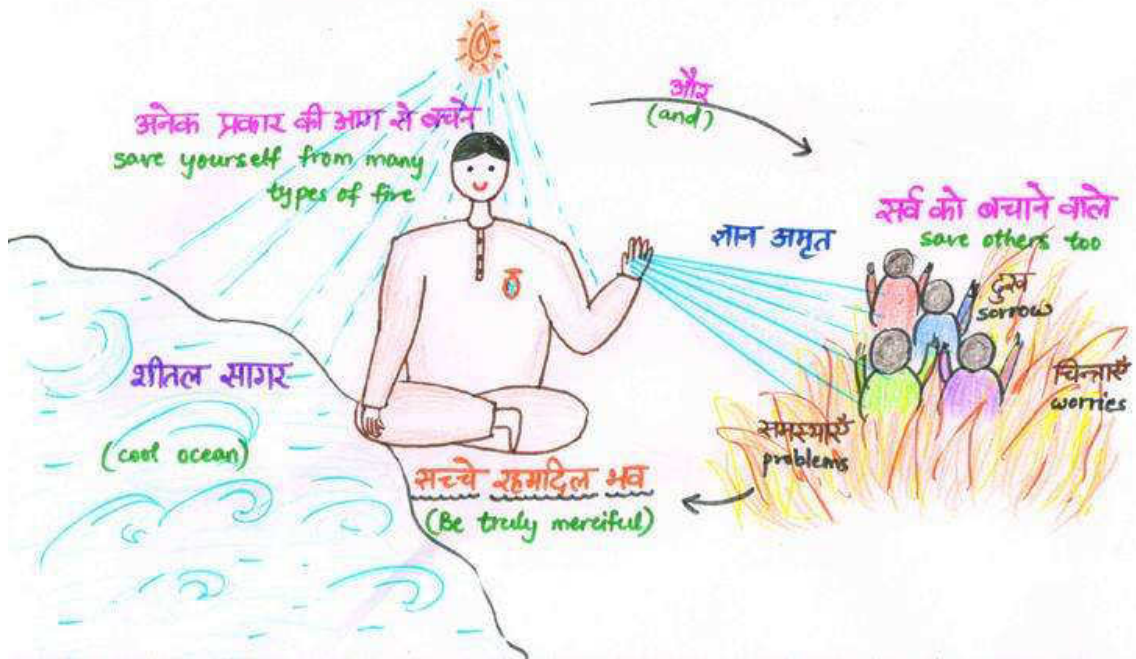 अनेक प्रकार की आग से बचने
save yourself from many
types of fire
और
(and)
सर्व को बचाने वाले
save others too
ज्ञान अमृत
दुख
sorrow
चिन्ताएँ
worries
समस्याएँ
problems
शीतल सागर
(cool ocean)
सच्चे रहमदिल भव
(Be truly merciful)